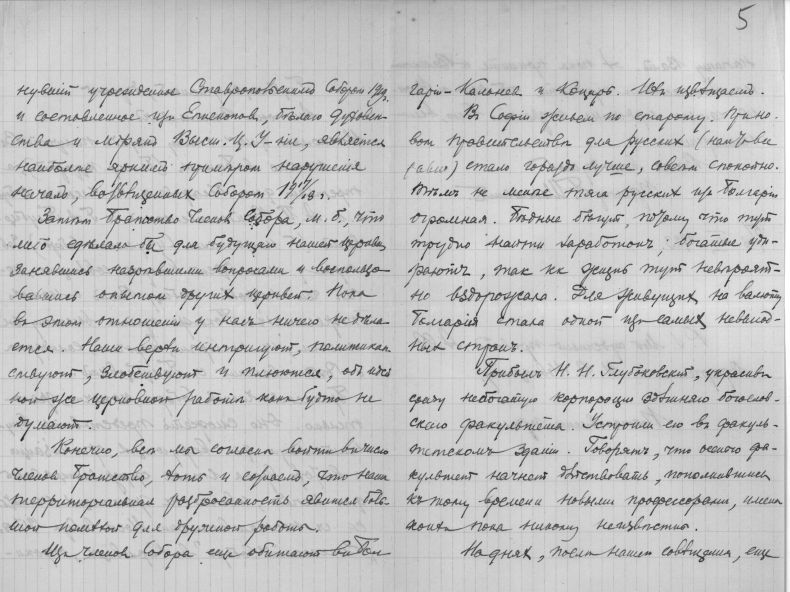 5
нувшій учрежденное Ставропольскимъ Соборомъ 1919.
и составленное изъ Епископовъ, бѣлаго духовен-
ства и мірянъ Высш. Ц. У-ніе, является
наиболѣе яркимъ примѣромъ нарушенія
началъ, возвѣщенныхъ Соборомъ 1917/18 г.
Затѣмъ Братство Членовъ Собора, м. б., что
либо сдѣлало бы для будущаго нашей церкви,
занявшись назрѣвшими вопросами и воспользо-
вавшись опытомъ другихъ церквей. Пока
въ этомъ отношеніи у насъ ничего не дѣла-
ется. Наши верхи интригуютъ, политикан-
ствуютъ, злобствуютъ и плюются, объ
же церковной работѣ какъ будто не
думаютъ.
Конечно, всѣ мы согласны войти въ число
членовъ Братства, хотя и сознаемъ, что наша
территоріальная разбросанность явится боль-
шой помѣхой для дружной работы.
Изъ членовъ Собора еще обитаютъ въ Бол-
гаріи – и . Ихъ извѣщаемъ.
Въ Софіи живемъ по старому. При но-
вомъ правительствѣ для русскихъ (
) стало гораздо лучше, совсѣмъ спокойно.
Тѣмъ не менѣе тяга русскихъ изъ Болгаріи
огромная. Бѣдные бѣгутъ, потому что тутъ
трудно найти заработокъ; богатые уди-
раютъ, такъ кк жизнь тутъ невѣроят-
но вздорожала. Для живущихъ на валюту
Болгарія стала одной изъ самыхъ невыгод-
ныхъ странъ.
Прибылъ Н. Н. Глубоковскій, украсивъ
сразу небогатую корпорацію здѣшняго богослов-
скаго факультета. Устроили его въ факуль-
тетскомъ зданіи. Говорятъ, что осенью фа-
культетъ начнетъ дѣйствовать, пополнившись
къ тому времени новыми профессорами, имена
коихъ пока никому неизвѣстны.
На дняхъ, послѣ нашего совѣщанія, еще